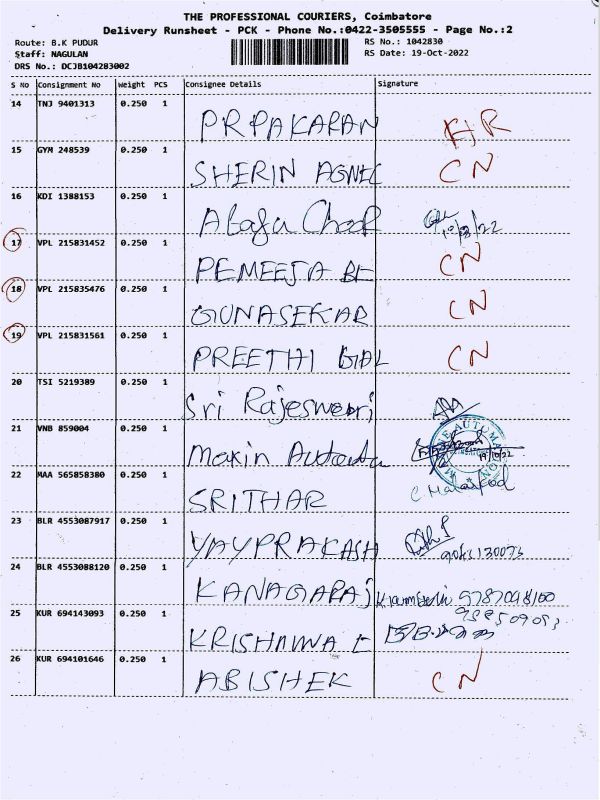 THE PROFESSIONAL COURIERS, Coimbatore
Delivery Runsheet - PCK - Phone No.:0422-3505555 - Page No.:2
Route: B.K PUDUR
RS No.: 1042830
Staff: NAGULAN
RS Date: 19-Oct-2022
DRS No.: DCJB104283002
S No Consignment No Weight PCS Consignee Details Signature
14 TNJ 9401313 0.250 1
PRPAKARAN
15 GYM 248539 0.250 1
SHERIN AGNEL CN
16 KDI 1388153 0.250 1
17 VPL 215831452 0.250 1
PEMEEJA BE CN
18 VPL 215835476 0.250 1
GUNASEKAR CN
19 VPL 215831561 0.250 1
PREETHI GAL CN
20 TSI 5219389 0.250 1
Sri Rajeswari
21 VNB 859004 0.250 1
Makin
19/10/22
22 MAA 565858380 0.250 1
SRITHAR
23 BLR 4553087917 0.250 1
YAYPRAKASH
24 BLR 4553088120 0.250 1
KANAGARAJ
25 KUR 694143093 0.250 1
KRISHNNA E
26 KUR 694101646 0.250 1
ABISHEK CN